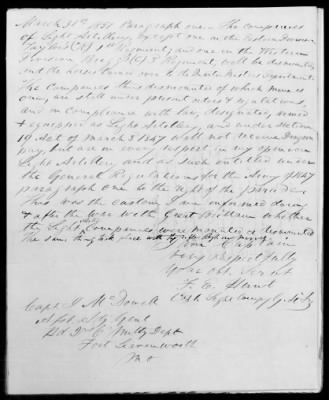 March 31st 1851 Paragraph one. The companies
of Light Artillery, except one in the Eastern Division
Taylor's (K) 1st Regiment, and one in the Western
Division Bragg's (C) 3 Regiment, will be dismounted
and the horses turned over to the Quarter Masters department.
The Companies thus dismounted of which mine is
one, are still under present rules & regulations,
and in compliance with law, designated, armed
& equipped as Light Artillery, and under section
19 Act of March 3 1847 will not receive Dragoon
pay, but are in every respect in my opinion
Light Artillery and as such entitled under
the General Regulations for the Army of 1847
paragraph one to the right of the parade.
This was the custom I am informed during
& after the war with Great Britain whether
the Light Arty Companies were mounted or dismounted
The same thing took place with the
I am Captain
Very Respectfully
Your obt. Servt
F. E. Hunt
Comdg Light Compy 4 Arty
Capt. I McDowell
Asst Adj Genl
Hd Qrs 6 Mility Dept
Fort Leavenworth
Mo